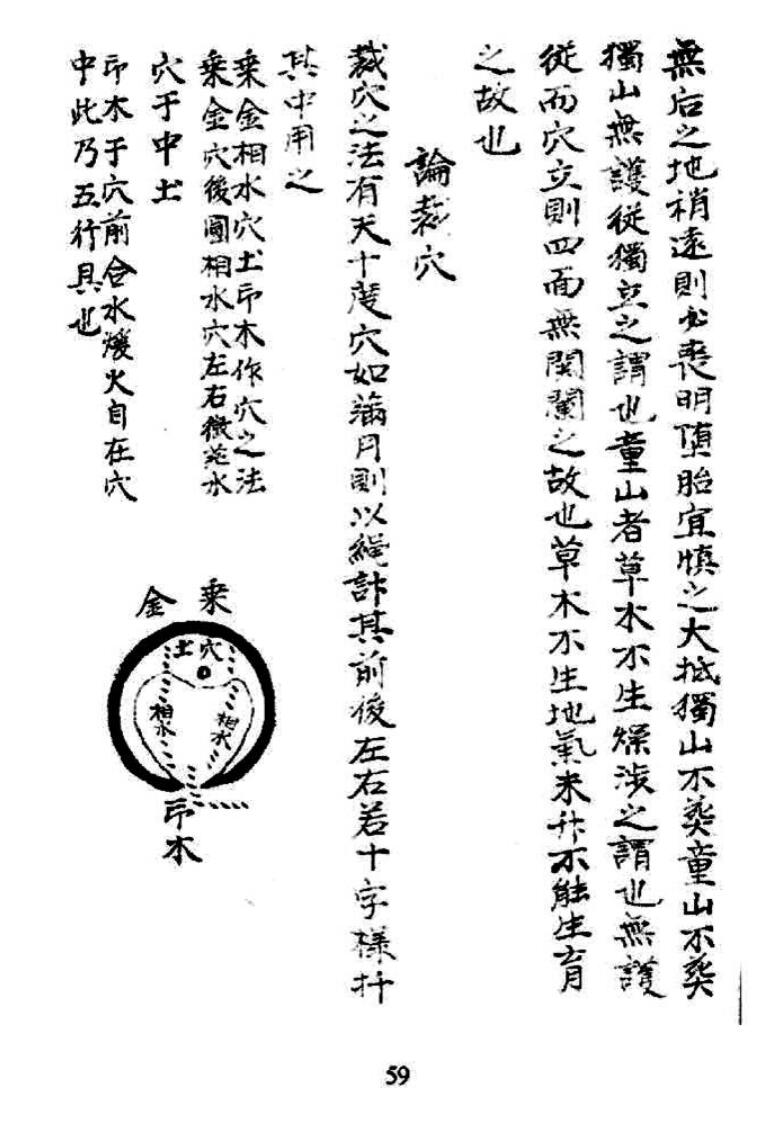 無后之地稍遠則必喪明墮胎宜慎之大抵獨山不葬童山不葬
獨山無護從獨立之謂也童山者草木不生燥涉之謂也無護
從而穴立則四面無関闌之故也草木不生地氣未升不能生育
之故也
論裁穴
裁穴之法有天十度穴如滿月則以繩計其前後左右若十字樣扦
其中用之
乗金相水穴土印木作穴之法
乗金穴後圓相水穴左右微茫水
穴于中土
印木于穴前合水煖火自在穴
中此乃五行具也
乗
金
穴
土
相水
相水
印木
59